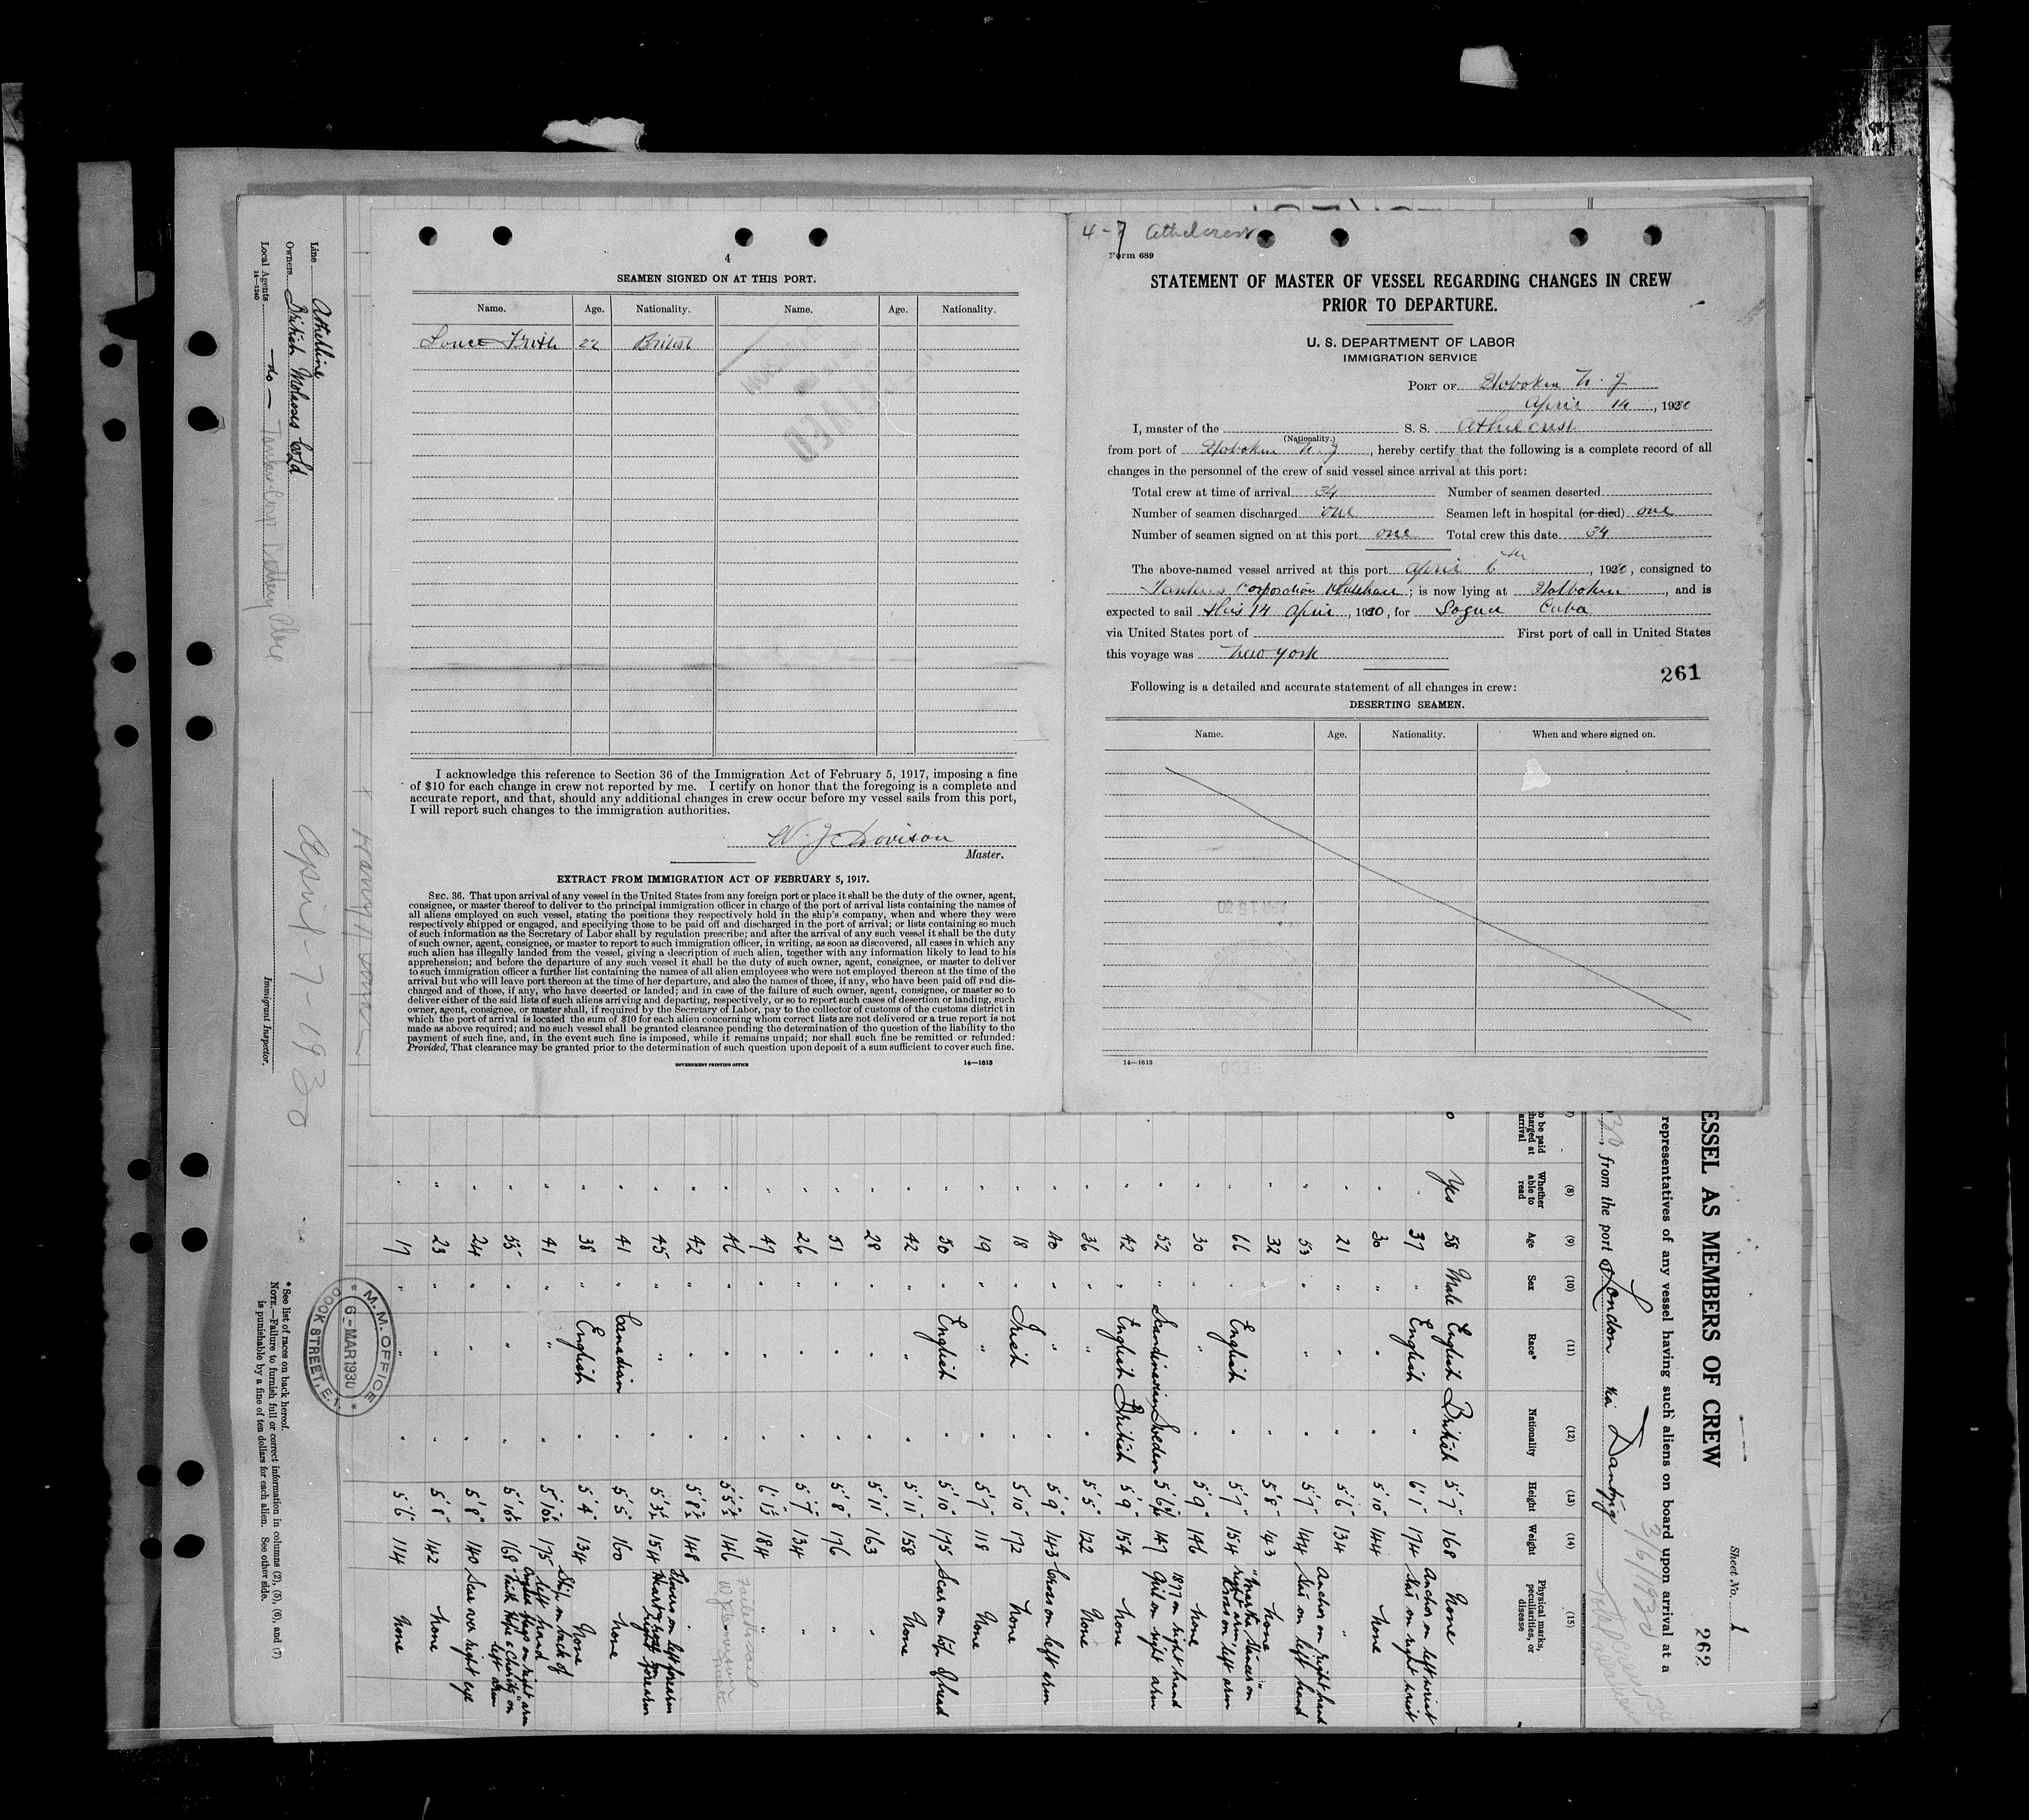 4
SEAMEN SIGNED ON AT THIS PORT.
Name. Age. Nationality. Name. Age. Nationality.
Frith 22 British
I acknowledge this reference to Section 36 of the Immigration Act of February 5, 1917, imposing a fine
of $10 for each change in crew not reported by me. I certify on honor that the foregoing is a complete and
accurate report, and that, should any additional changes in crew occur before my vessel sails from this port,
I will report such changes to the immigration authorities.
W. J. Dovison
Master.
EXTRACT FROM IMMIGRATION ACT OF FEBRUARY 5, 1917.
SEC. 36. That upon arrival of any vessel in the United States from any foreign port or place it shall be the duty of the owner, agent,
consignee, or master thereof to deliver to the principal immigration officer in charge of the port of arrival lists containing the names of
all aliens employed on such vessel, stating the positions they respectively hold in the ship's company, when and where they were
respectively shipped or engaged, and specifying those to be paid off and discharged in the port of arrival; or lists containing so much
of such information as the Secretary of Labor shall by regulation prescribe; and after the arrival of any such vessel it shall be the duty
of such owner, agent, consignee, or master to report to such immigration officer, in writing, as soon as discovered, all cases in which any
such alien has illegally landed from the vessel, giving a description of such alien, together with any information likely to lead to his
apprehension; and before the departure of any such vessel it shall be the duty of such owner, agent, consignee, or master to deliver
to such immigration officer a further list containing the names of all alien employees who were not employed thereon at the time of the
arrival but who will leave port thereon at the time of her departure, and also the names of those, if any, who have been paid off and dis-
charged and of those, if any, who have deserted or landed; and in case of the failure of such owner, agent, consignee, or master so to
deliver either of the said lists of such aliens arriving and departing, respectively, or so to report such cases of desertion or landing, such
owner, agent, consignee, or master shall, if required by the Secretary of Labor, pay to the collector of customs of the customs district in
which the port of arrival is located the sum of $10 for each alien concerning whom correct lists are not delivered or a true report is not
made as above required; and no such vessel shall be granted clearance pending the determination of the question of the liability to the
payment of such fine, and, in the event such fine is imposed, while it remains unpaid; nor shall such fine be remitted or refunded:
Provided, That clearance may be granted prior to the determination of such question upon deposit of a sum sufficient to cover such fine.
GOVERNMENT PRINTING OFFICE 14—1613
4-7 Athelcrest
Form 689
STATEMENT OF MASTER OF VESSEL REGARDING CHANGES IN CREW
PRIOR TO DEPARTURE.
U. S. DEPARTMENT OF LABOR
IMMIGRATION SERVICE
PORT OF Hoboken N. J
April 14, 1930
I, master of the S. S. Athelcrest
(Nationality.)
from port of Hoboken N. J, hereby certify that the following is a complete record of all
changes in the personnel of the crew of said vessel since arrival at this port:
Total crew at time of arrival 34 Number of seamen deserted
Number of seamen discharged one Seamen left in hospital (or died) one
Number of seamen signed on at this port one Total crew this date 34
The above-named vessel arrived at this port April 6th, 1930, consigned to
Tankers Corporation ; is now lying at Hoboken, and is
expected to sail this 14 April, 1930, for Sagua Cuba
via United States port of First port of call in United States
this voyage was New York
261
Following is a detailed and accurate statement of all changes in crew:
DESERTING SEAMEN.
Name. Age. Nationality. When and where signed on.
14—1613
Line Athelline
Owners British Molasses Co Ld
Local Agents —do—
14—1240
April-7-1930
Immigrant Inspector.
*See list of races on back hereof.
NOTE.—Failure to furnish full or correct information in columns (2), (5), (6), and (7)
is punishable by a fine of ten dollars for each alien. See other side.
M.M. OFFICE
6-MAR 1930
DOCK STREET, E.1.
Sheet No. 1
262
ESSEL AS MEMBERS OF CREW
representatives of any vessel having such aliens on board upon arrival at a
30, from the port of London via Dantzig
(8) (9) (10) (11) (12) (13) (14) (15)
Whether able to read Age Sex Race* Nationality Height Weight Physical marks, peculiarities, or disease
Yes 58 Male English British 5'7" 168 None
" 37 " English " 6'1" 174 Anchor on left wrist
" 30 " " " 5'10" 144 None
" 21 " " " 5'6" 134 "
" 53 " " " 5'7" 144 Anchor on right hand on left hand
" 32 " " " 5'8" 143 None
" 66 " English " 5'7" 154 Cross on left arm
" 30 " " " 5'9" 146 None
" 52 " Scandinavian Sweden 5'6½ 147 1897 on right hand Girl on right arm
" 42 " English British 5'9" 154 None
" 36 " " " 5'5" 122 None
" 40 " " " 5'9" 143 Cross on left arm
" 18 " Irish " 5'10" 172 None
" 19 " " " 5'7" 118 None
" 50 " English " 5'10" 175 Scar on head
" 42 " " " 5'11" 158 None
" 28 " " " 5'11" 163 "
" 51 " " " 5'8" 176 "
" 26 " " " 5'7" 134 "
" 47 " " " 6'1½ 184 "
" 46 " " " 5'5½ 146
" 42 " " " 5'8½ 148 "
" 45 " " " 5'3½ 154 on left forearm right forearm
" 41 " Canadian " 5'5" 160 None
" 38 " English " 5'4" 134 None
" 41 " " " 5'10½ 175 Ship on back of left hand
" 55 " " " 5'10½ 168 on right arm "Faith Hope & Charity" on left arm
" 24 " " " 5'8" 140 Scar over right eye
" 23 " " " 5'8" 142 None
" 17 " " " 5'6" 114 None